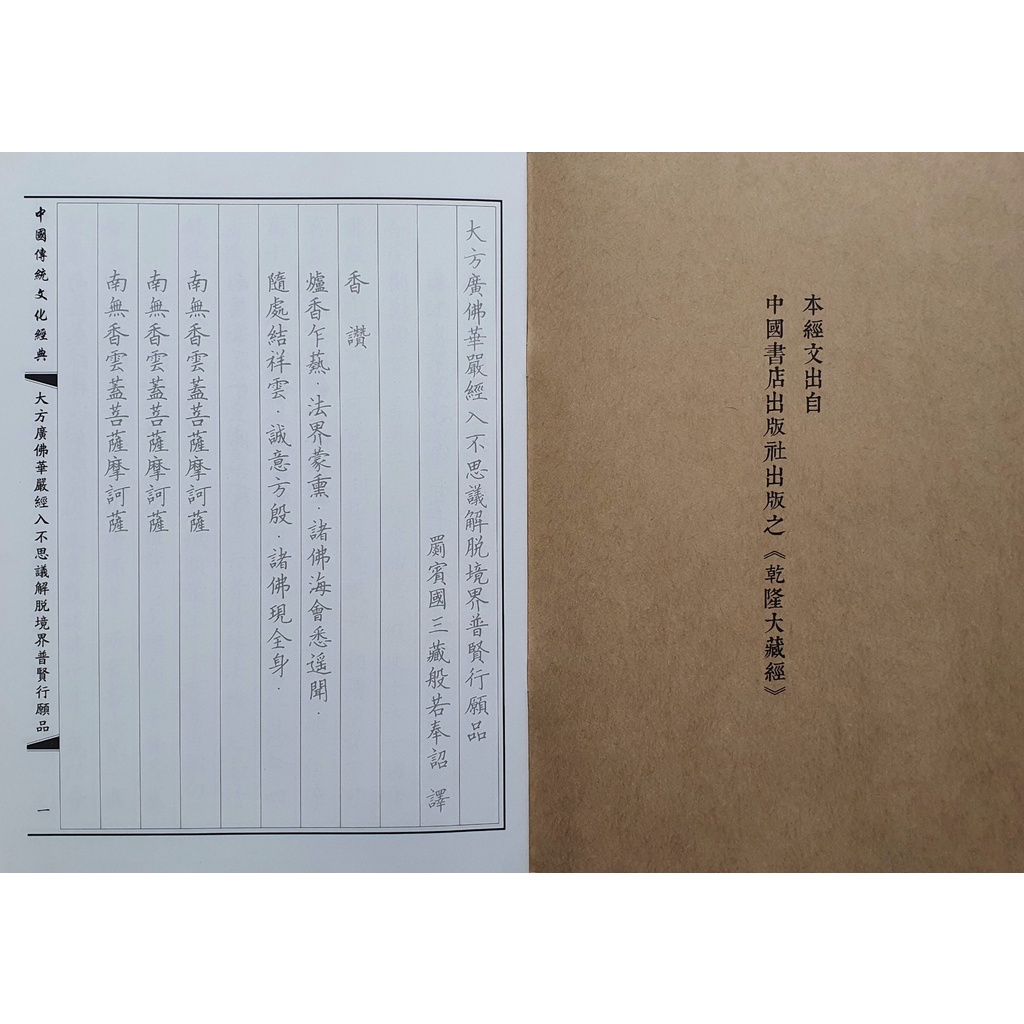 本經文出自
中國書店出版社出版之《乾隆大藏經》
大方廣佛華嚴經入不思議解脱境界普賢行願品
罽賓國三藏般若奉詔 譯
香 讚
爐香乍爇．法界蒙熏．諸佛海會悉遥聞．
隨處結祥雲．誠意方殷．諸佛現全身．
南無香雲蓋菩薩摩訶薩
南無香雲蓋菩薩摩訶薩
南無香雲蓋菩薩摩訶薩
中國傳統文化經典
大方廣佛華嚴經入不思議解脱境界普賢行願品
一